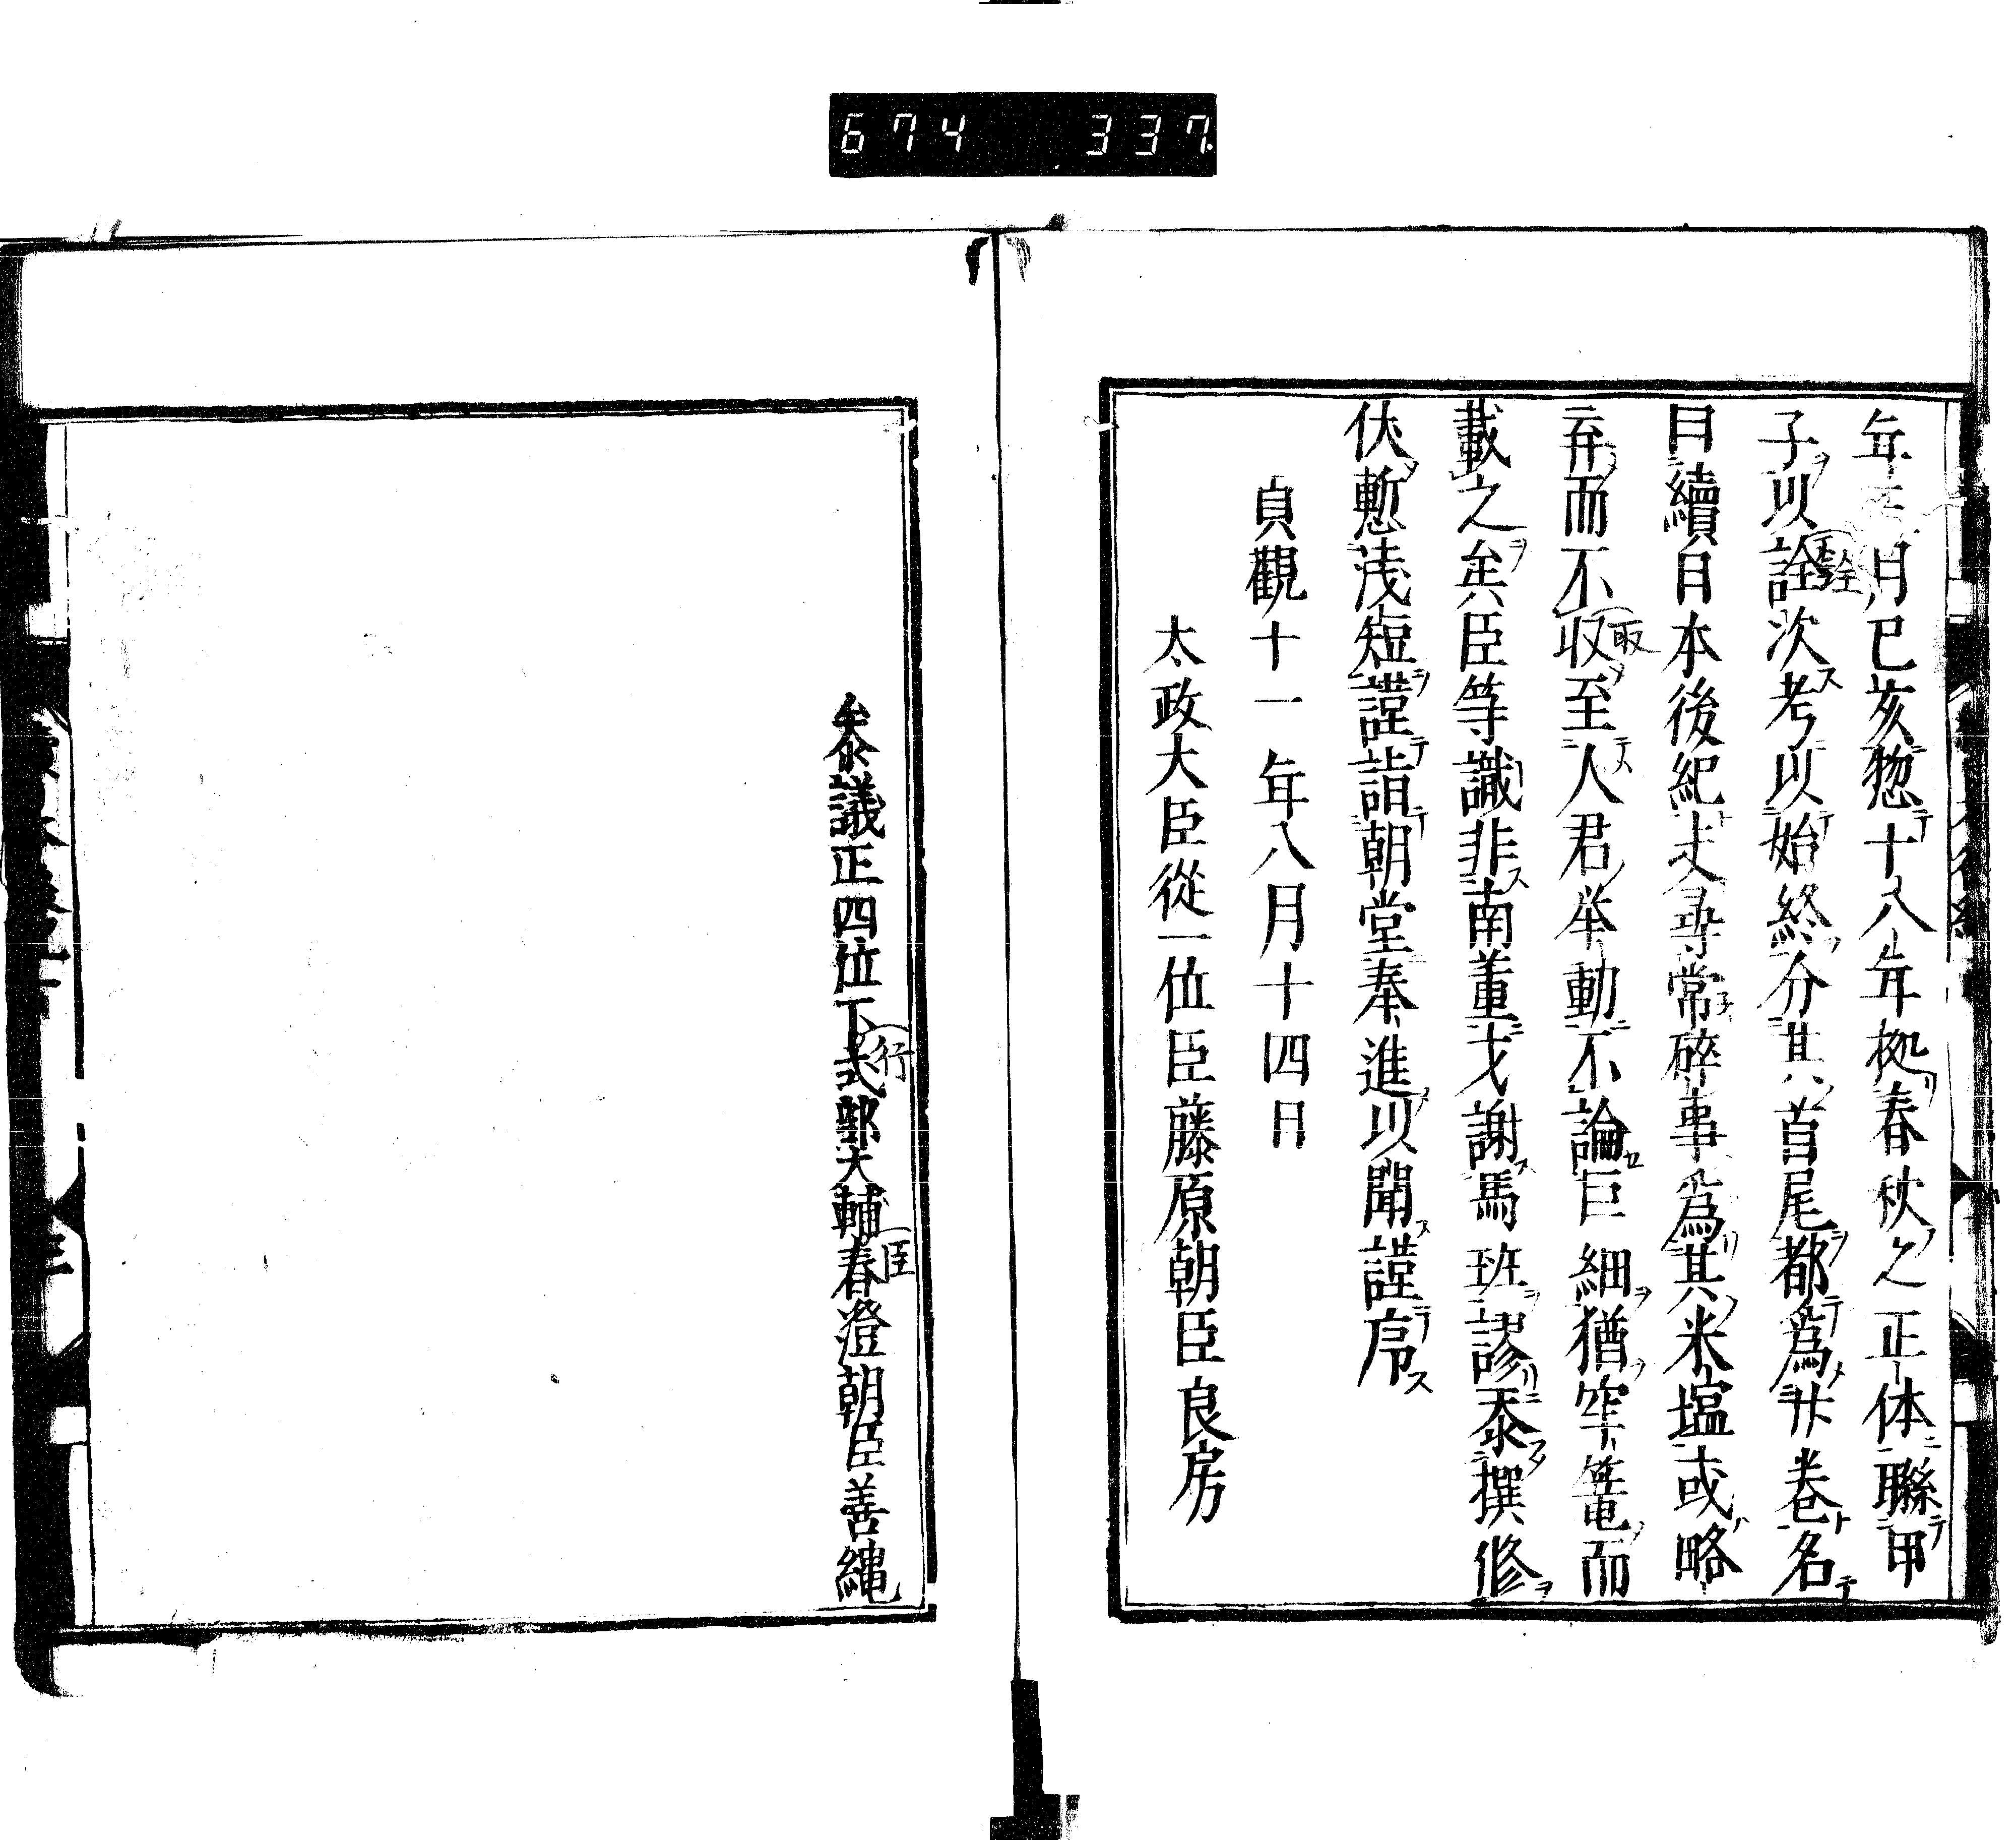 674 337
年三月已亥惣十八年拠春秋之正体聯甲
子以詮次考以始終分其首尾都為廾卷名
曰續日本後紀夫尋常碎事為其米塩或略
弃而不収至人君举動不論巨細猶牢篭而
載之矣臣等識非南董才謝馬班謬忝撰修
伏慙浅短謹詣朝堂奉進以聞謹序
貞觀十一年八月十四日
太政大臣從一位臣藤原朝臣良房
参議正四位下式部大輔春澄朝臣善縄
銓
取
行
臣